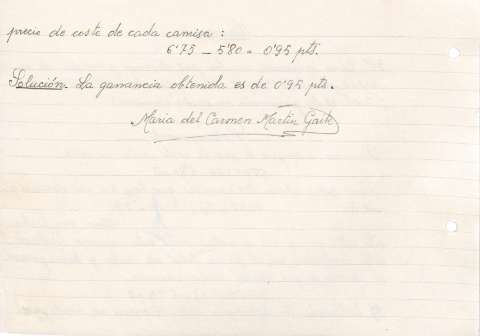 precio de coste de cada camisa :
6'75 - 5'80 = 0'95 pts.
Solución. La ganancia obtenida es de 0'95 pts.
María del Carmen Martín Gaite